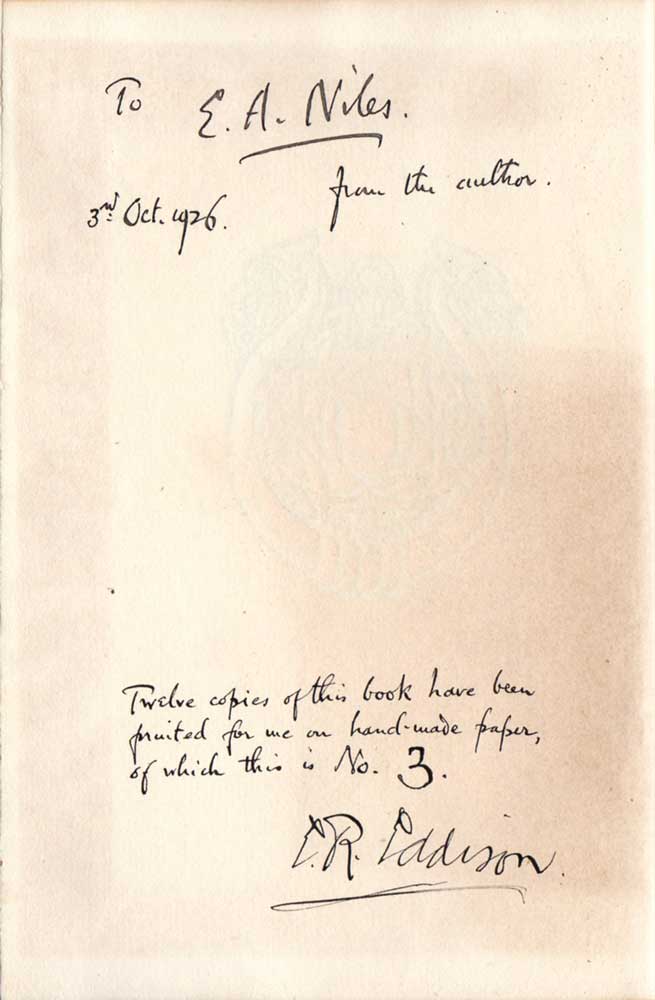 To E. A. Niles.
from the author.
3rd. Oct. 1926.
Twelve copies of this book have been
printed for me on hand-made paper,
of which this is No. 3.
E.R. Eddison.